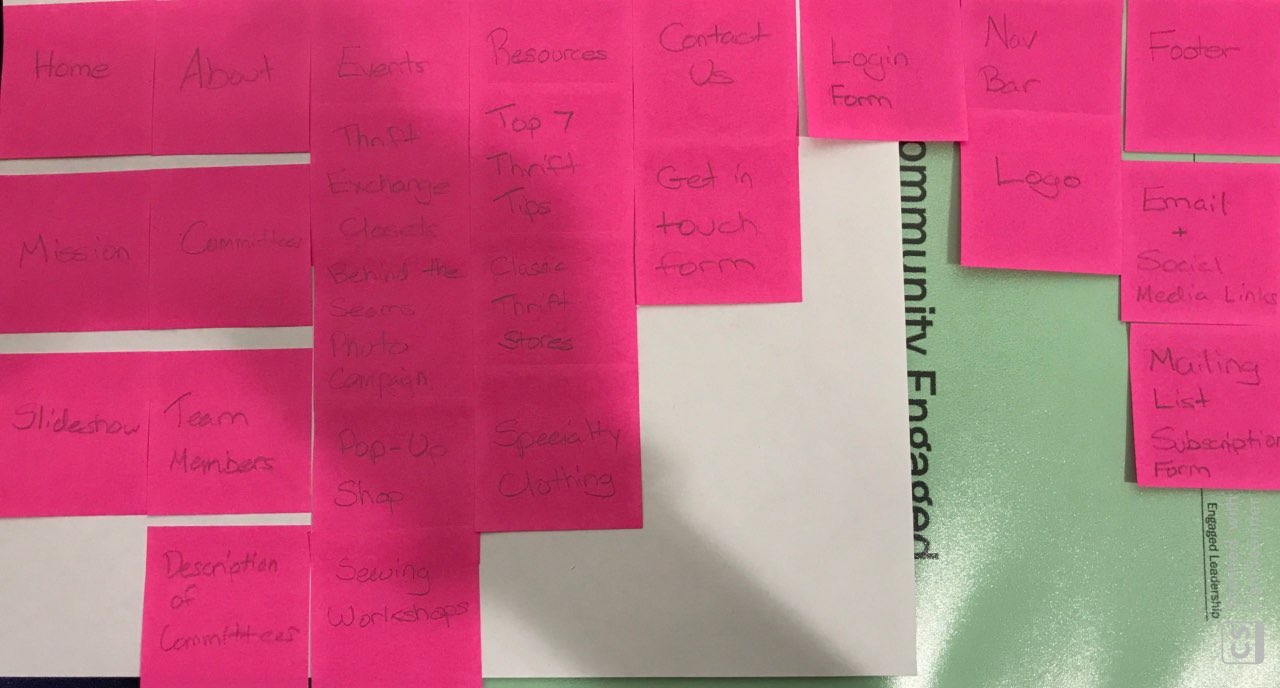 Home
Mission
Slideshow
About
Committees
Team
Members
Description
of
Committees
Events
Thrift
Exchange
Closets
Behind the
Seams
Photo
Campaign
Pop-Up
Shop
Sewing
Workshops
Resources
Top 7
Thrift
Tips
Classic
Thrift
Stores
Specialty
Clothing
Contact
Us
Get in
touch
form
Login
Form
Nav
Bar
Logo
Footer
Email
+
Social
Media Links
Mailing
List
Subscription
Form
ommunity Engaged
Engaged Leadership